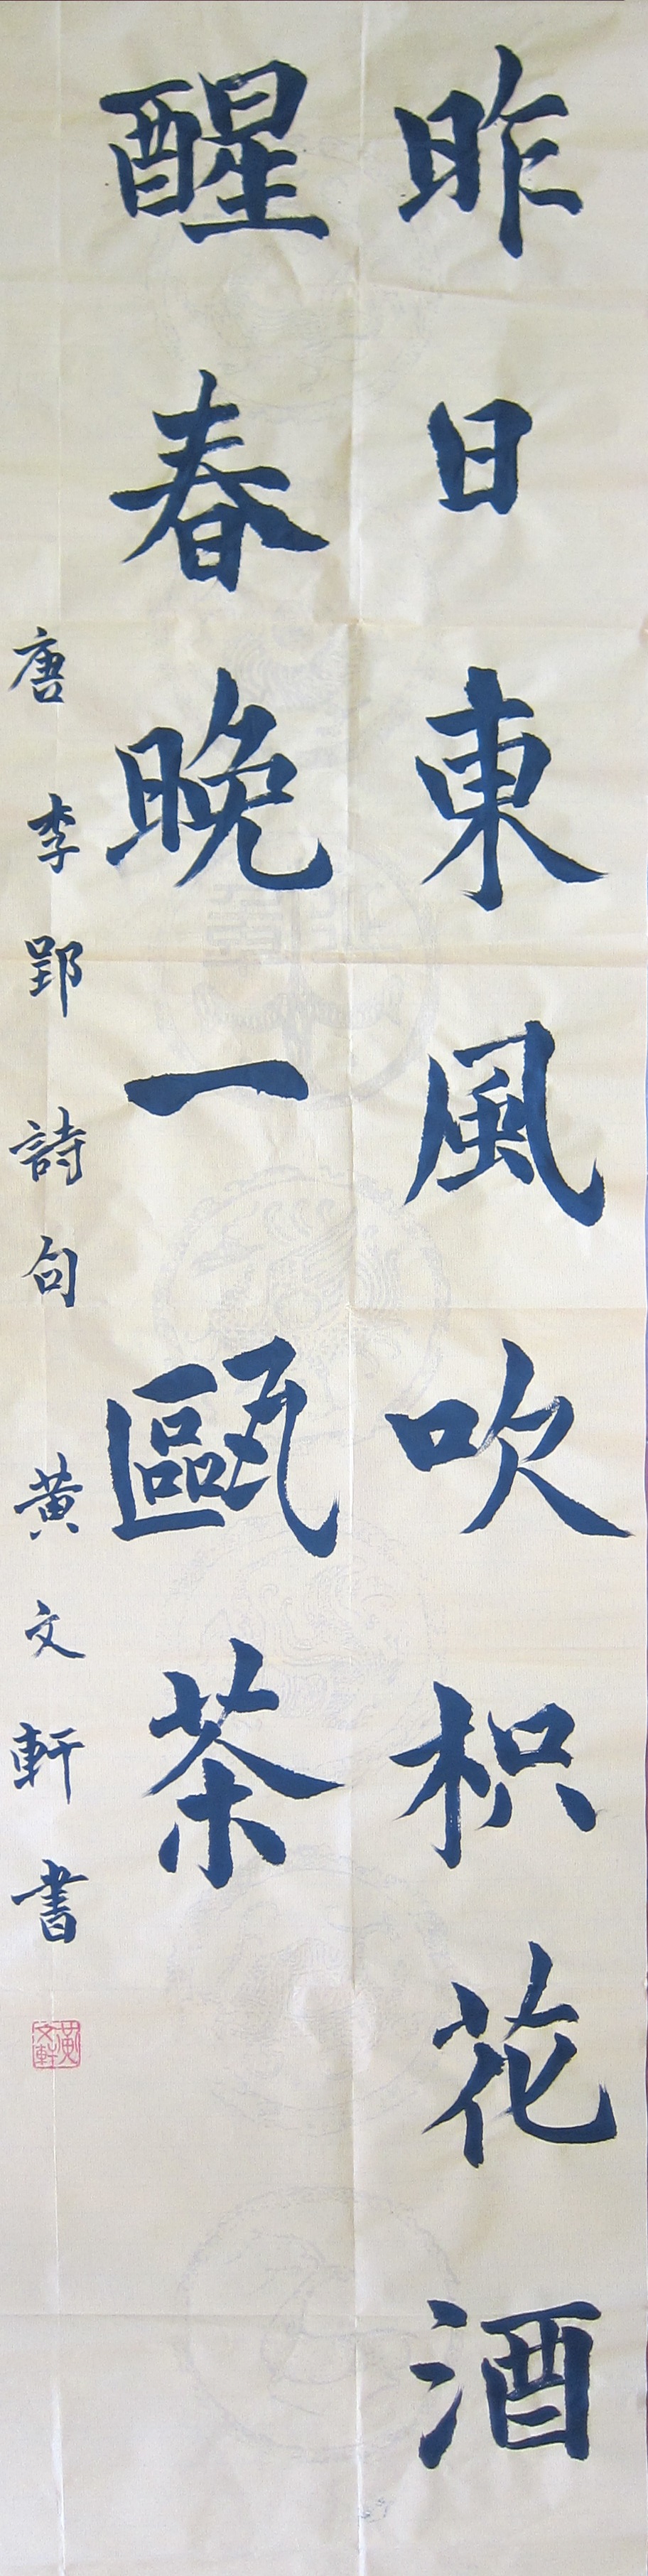 昨日東風吹枳花酒
醒春晚一甌茶
唐李郢詩句黃文軒書
黃文軒